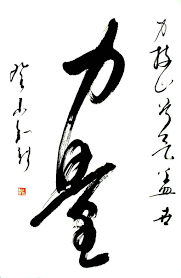 力拔山兮氣蓋世
力量